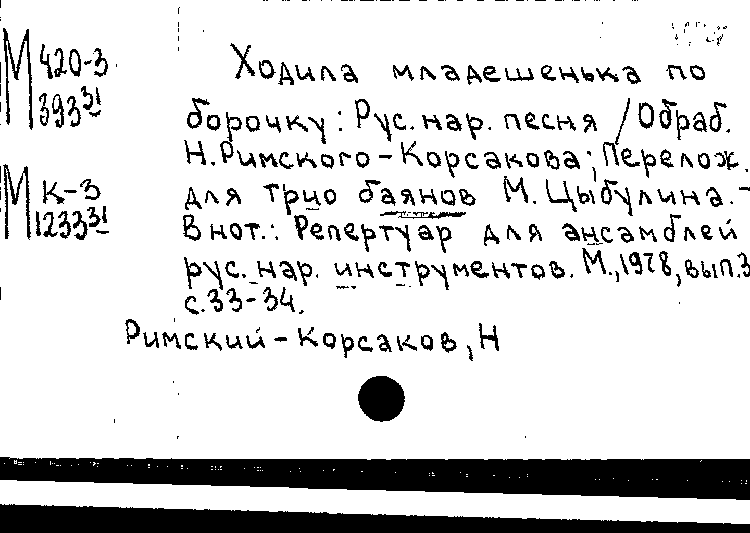 М 420-3
393 31
М К-3
1233 31
Ходила младешенька по
борочку: Рус. нар. песня / Обраб.
Н. Римского-Корсакова; Перелож.
для трио баянов М. Цыбулина. -
В нот.: Репертуар для ансамблей
рус. нар. инструментов. М., 1978, вып. 3
с. 33-34.
Римский-Корсаков, Н